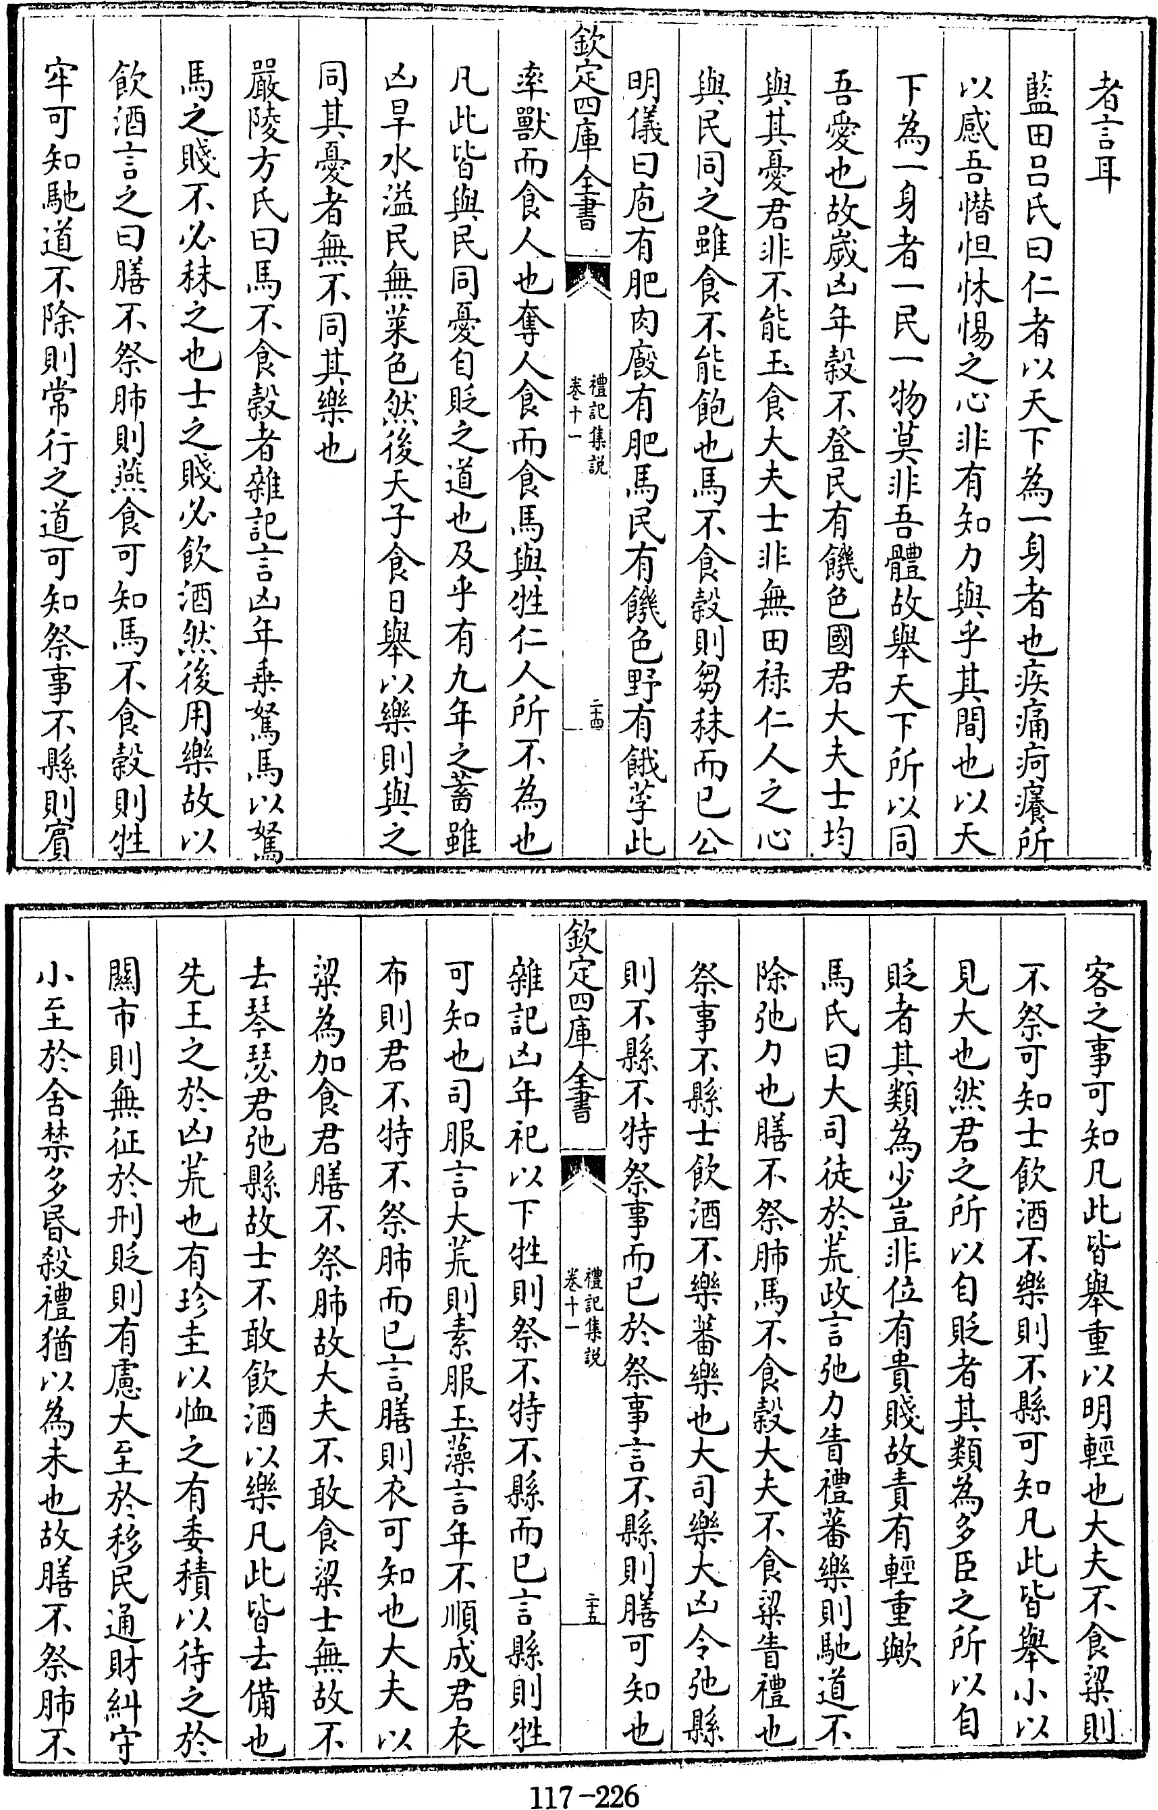 者言耳
藍田吕氏曰仁者以天下為一身者也疾痛疴癢所
以感吾憯怛怵惕之心非有知力與乎其間也以天
下為一身者一民一物莫非吾體故舉天下所以同
吾愛也故歲凶年穀不登民有饑色國君大夫士均
與其憂君非不能玉食大夫士非無田禄仁人之心
與民同之雖食不能飽也馬不食穀則芻秣而已公
明儀曰庖有肥肉廄有肥馬民有饑色野有餓莩此
欽定四庫全書
禮記集說
卷十一
二十四
率獸而食人也奪人食而食馬與牲仁人所不為也
凡此皆與民同憂自貶之道也及乎有九年之蓄雖
凶旱水溢民無菜色然後天子食日舉以樂則與之
同其憂者無不同其樂也
嚴陵方氏曰馬不食穀者雜記言凶年乗駑馬以駑
馬之賤不必秣之也士之賤必飲酒然後用樂故以
飲酒言之曰膳不祭肺則燕食可知馬不食穀則牲
牢可知馳道不除則常行之道可知祭事不縣則賓
客之事可知凡此皆舉重以明輕也大夫不食粱則
不祭可知士飲酒不樂則不縣可知凡此皆舉小以
見大也然君之所以自貶者其類為多臣之所以自
貶者其類為少豈非位有貴賤故責有輕重歟
馬氏曰大司徒於荒政言弛力眚禮蕃樂則馳道不
除弛力也膳不祭肺馬不食穀大夫不食粱眚禮也
祭事不縣士飲酒不樂蕃樂也大司樂大凶令弛縣
則不縣不特祭事而已於祭事言不縣則膳可知也
欽定四庫全書
禮記集說
卷十一
二十五
雜記凶年祀以下牲則祭不特不縣而已言縣則牲
可知也司服言大荒則素服玉藻言年不順成君衣
布則君不特不祭肺而已言膳則衣可知也大夫以
粱為加食君膳不祭肺故大夫不敢食粱士無故不
去琴瑟君弛縣故士不敢飲酒以樂凡此皆去備也
先王之於凶荒也有珍圭以恤之有委積以待之於
關市則無征於刑貶則有慮大至於移民通財糾守
小至於舍禁多昬殺禮猶以為未也故膳不祭肺不
117-226